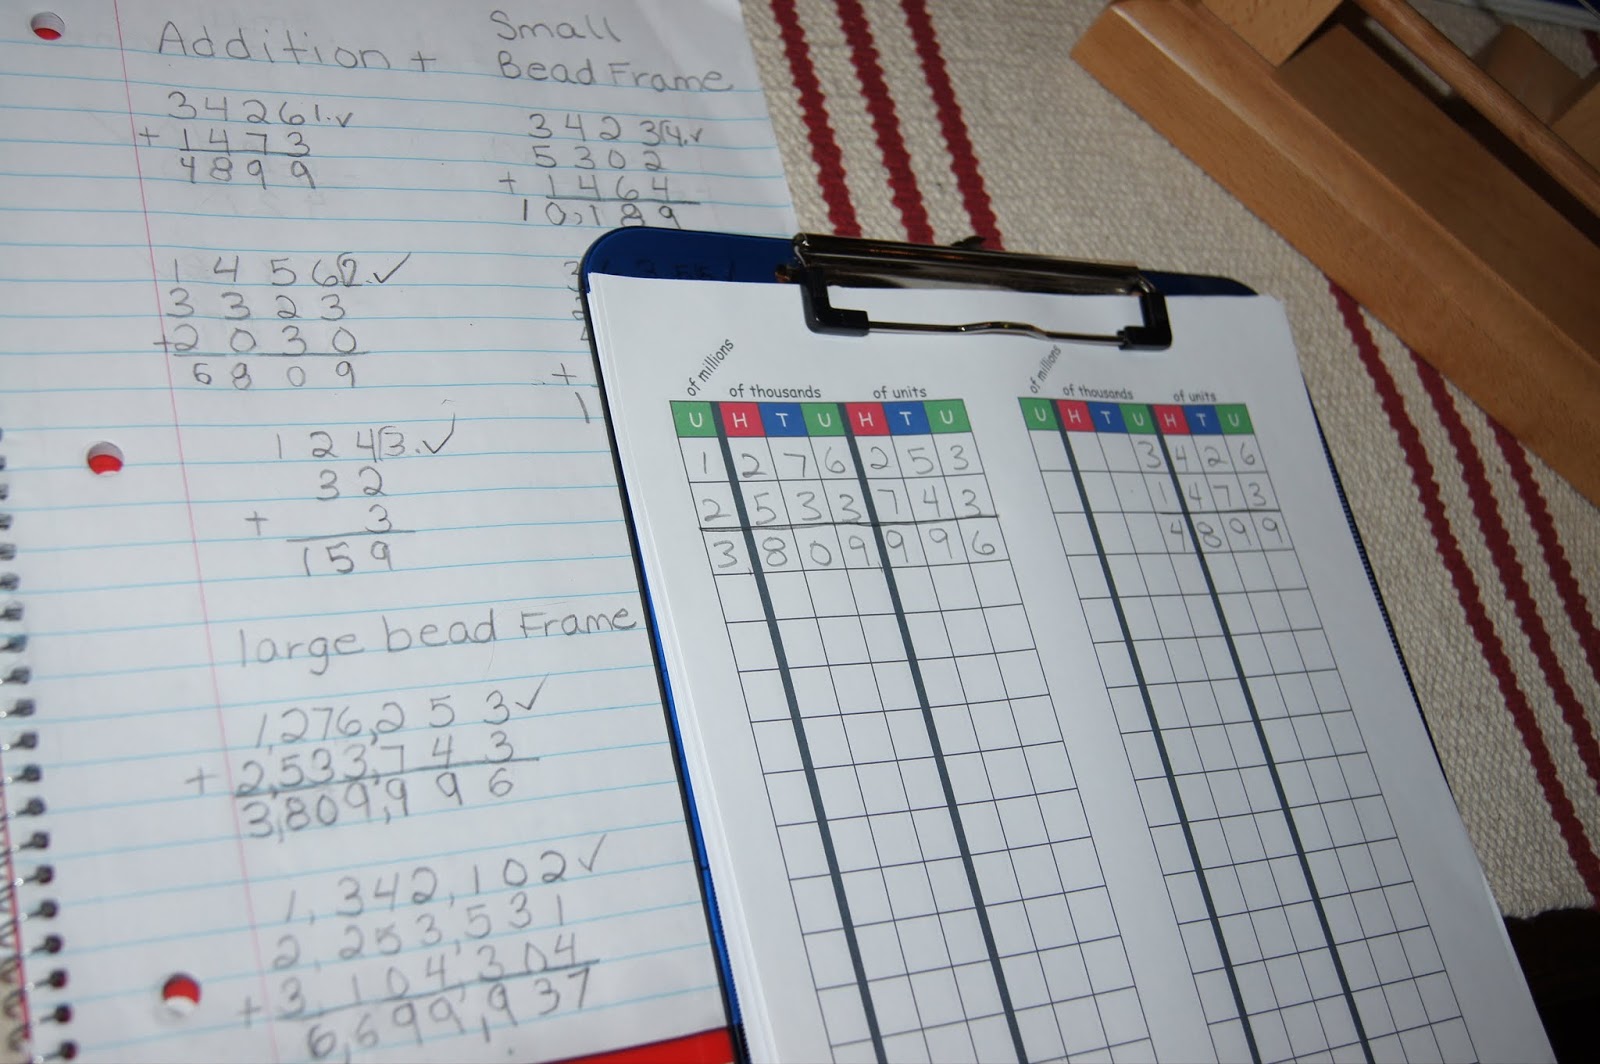 Addition +
3426 1.✓
+ 1473
4899
1456 2.✓
3323
+2030
6809
124 3.✓
32
+ 3
159
Small
Bead Frame
3423 4.✓
5302
+ 1464
10,189
+
1
large bead Frame
1,276,253 ✓
+ 2,533,743
3,809,996
1,342,102 ✓
2,253,531
+3,104,304
6,699,937
of millions of thousands of units
U H T U H T U
1 2 7 6 2 5 3
2 5 3 3 7 4 3
3,8 0 9,9 9 6
of millions of thousands of units
U H T U H T U
3 4 2 6
1 4 7 3
4 8 9 9